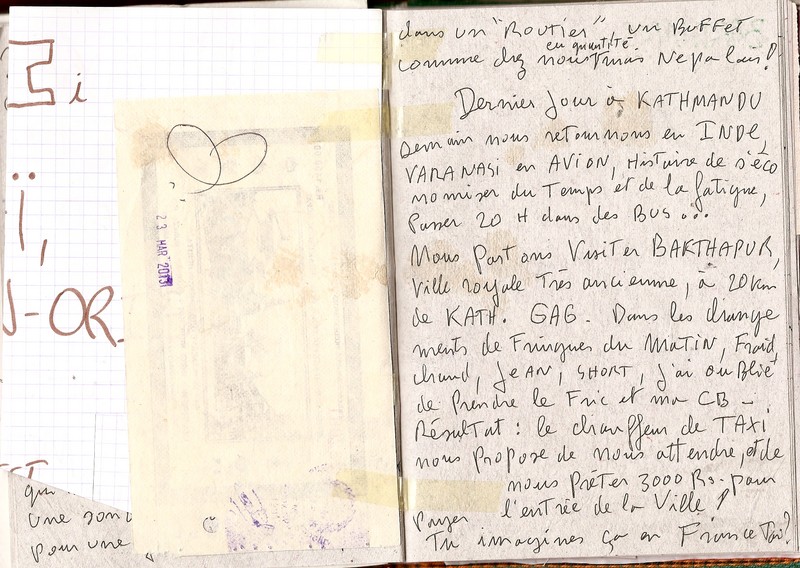 3 i
ï,
J-OR.
23 MAR 2013
que
une
pour une
dans un "Routier", un BUFFET
comme chez nous en quantité mais Nepalais!
Dernier jour à KATHMANDU
Demain nous retournons en INDE,
VARANASI en AVION, Histoire de s'éco
nomiser du Temps et de la fatigue,
Passer 20 H dans des BUS...
Nous partons Visiter BAKTHAPUR,
Ville royale Très ancienne, à 20 km
de KATH. GAG. Dans les change
ments de Fringues du MATIN, Froid,
chaud, JEAN, SHORT, j'ai oublié
de Prendre le Fric et ma CB -
Résultat : le chauffeur de TAXI
nous propose de nous attendre, et de
nous Prêter 3000 Rs. pour
payer l'entrée de la Ville !
Tu imagines ça en France Toi?